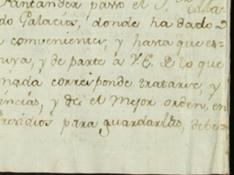 Santander passo el S.
do Palacia, donde ha dado
convenientes, y hasta que es-
uya, y de parte a V.E. lo que
nada corresponde tratarse, y
incias, y de el mejor orden, en
Presidios para guardarlas, debe